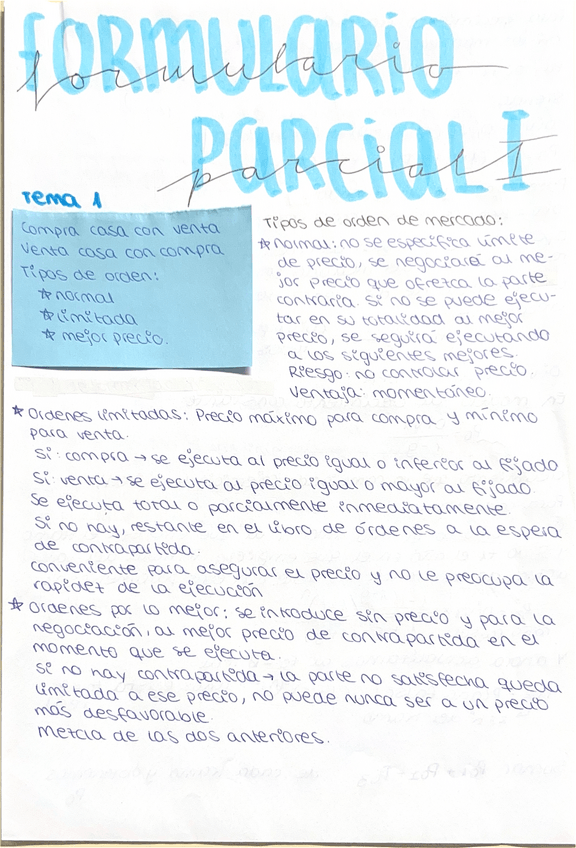 FORMULARIO
formulario
PARCIAL I
parcial I
Tema 1
Compra casa con venta
Venta casa con compra
Tipos de orden:
★ normal
★ limitada
★ mejor precio.
Tipos de orden de mercado:
★ Normal: no se especifica límite
de precio, se negociará al me-
jor precio que ofrezca la parte
contraria. Si no se puede ejecu-
tar en su totalidad al mejor
precio, se seguirá ejecutando
a los siguientes mejores.
Riesgo: no controlar precio.
Ventaja: momentáneo.
★ Ordenes limitadas: Precio máximo para compra y mínimo
para venta.
Si: compra → se ejecuta al precio igual o inferior al fijado
Si: venta → se ejecuta al precio igual o mayor al fijado.
Se ejecuta total o parcialmente inmediatamente.
Si no hay, restante en el libro de órdenes a la espera
de contrapartida.
conveniente para asegurar el precio y no le preocupa la
rapidez de la ejecución
★ Ordenes por lo mejor: se introduce sin precio y para la
negociación, al mejor precio de contrapartida en el
momento que se ejecuta.
Si no hay contrapartida → la parte no satisfecha queda
limitada a ese precio, no puede nunca ser a un precio
más desfavorable.
Mezcla de las dos anteriores.